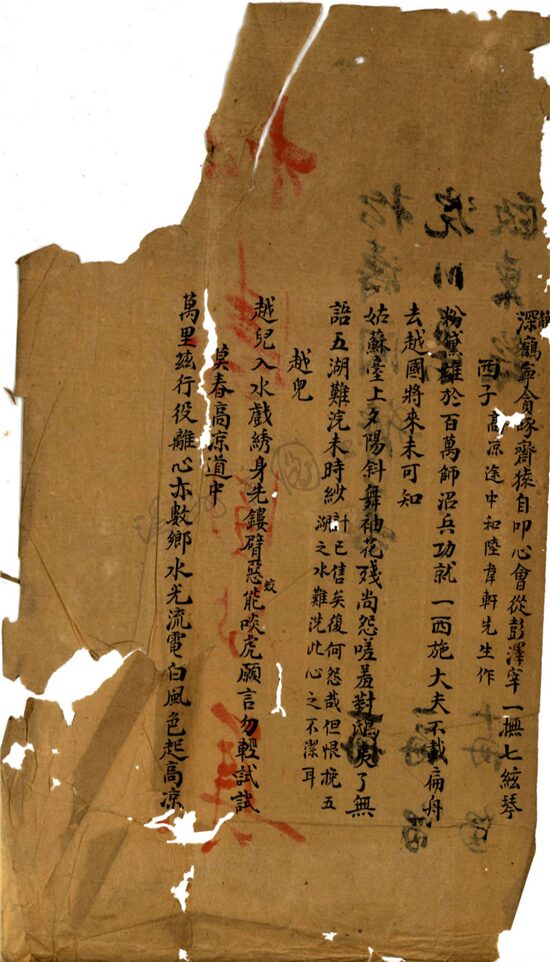 深鶴貪啄齋猿自叩心會從彭澤宰一撫七絃琴
西子 高凉途中和陸韋軒先生作
粉黛雄於百萬師沼兵功就一西施大夫不載扁舟
去越國將來未可知
姑蘇臺上夕陽斜舞袖花殘尚怨嗟羞對鴟夷了無
語五湖難浣未時紗 計已售矣復何怨哉但恨挽五
湖之水難洗此心之不潔耳
越兒
越兒入水戲綉身先鏤臂惡蛟能啖虎願言勿輕試試
莫春高凉道中
萬里玆行役離心亦數鄉水光流電白風色起高凉